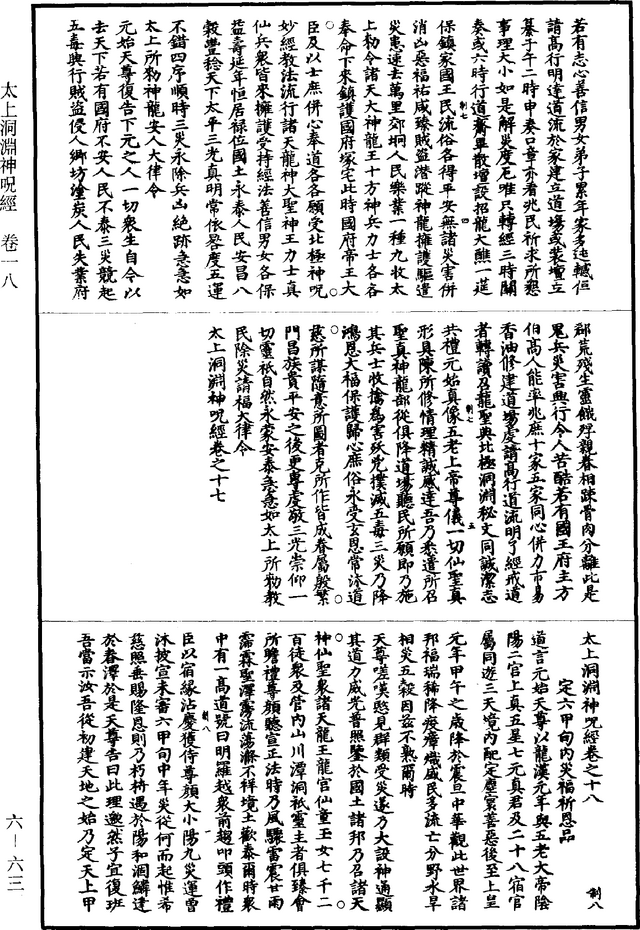 若有志心善信男女弟子累年家多迍轗但
請高行明達道流於家建立道場或裝壇立
纂子午二時申奏口章亦看兆民祈求所懇
事理大小如是解災度厄唯只轉經三時關
奏或六時行道齋畢散壇設招龍大醮一筵
制七 四
保鎮家國王民流俗各得平安無諸災害併
消凶惡福祐咸臻賊盜潛蹤神龍擁護驅遣
災患遠去萬里郊坰人民樂業一種九收太
上勑令諸天大神龍王十方神兵力士各各
奉命下來鎮護國府塚宅此時國府帝王大
臣及以士庶併心奉道各各願受北極神呪
妙經教法流行諸天龍神大聖神王力士真
仙兵衆皆來擁護受持經法善信男女各保
益壽延年恒居祿位國土永泰人民安昌八
穀豐稔天下太平三光真明常依晷度五運
不錯四序順時三災永除兵凶絕跡急急如
太上所勑神龍安人大律令
元始天尊復告下元之人一切衆生自今以
去天下若有國府不安人民不泰三災競起
五毒興行賊盜侵人鄉坊塗炭人民失業府
郡荒殘生靈餓殍親眷相踈骨肉分離此是
鬼兵災害興行令人苦酷若有國王府主方
伯高人能率兆庶十家五家同心併力市易
香油修建道場處請高行道流明了經戒道
者轉讀召龍聖典北極洞淵秘文同誠潔志
制七 五
共禮元始真像五老上帝尊儀一切仙聖真
形具陳所修情理精誠感達吾乃悉遣所召
聖真神龍部從俱降道場聽民所願即乃施
其兵士收擒為害妖兇撲滅五毒三災乃降
鴻恩大福保護歸心庶俗永受玄恩常沐道
慈所謀隨意所圖者克所作皆成眷屬般繁
門昌族貴平安之後更尊虔敬三光崇仰一
切靈祇自然永蒙安泰急急如太上所勑教
民除災請福大律令
太上洞淵神呪經卷之十七
太上洞淵神呪經卷之十八
制八
定六甲旬內災福祈恩品
道言元始天尊以龍漢元年與五老大帝陰
陽二官上真五星七元真君及二十八宿官
屬同遊三天境內配定塵寰善惡後至上皇
元年甲午之歲降於震旦中華觀此世界諸
邦福瑞稀降疫瘴熾盛民多流亡分野水旱
相災五穀因茲不熟爾時
天尊嗟嘆愍見群類受災遂乃大設神通顯
其道力威光普照鑒於國土諸邦乃召諸天
神仙聖衆諸天龍王龍官仙童玉女七千二
百徒衆及管內山川潭洞祇靈主者俱臻會
所瞻禮尊顏聽宣正法時乃風驟雷震甘雨
霶霈聖澤霧流蕩滌不祥境土歡泰爾時衆
中有一高道號曰明羅越衆前趨叩頭作禮
制八 一
臣以宿緣沾慶獲侍尊顏大小陽九災運曾
沐披宣未審六甲旬中年災從何而起惟希
慈照垂賜隆恩則乃朽枿遇於陽和涸鱗達
於春澤於是天尊告曰此理邈然子宜復班
吾當示汝吾從初建天地之始乃定天上甲
太上洞淵神呪經 卷一八
六－六三